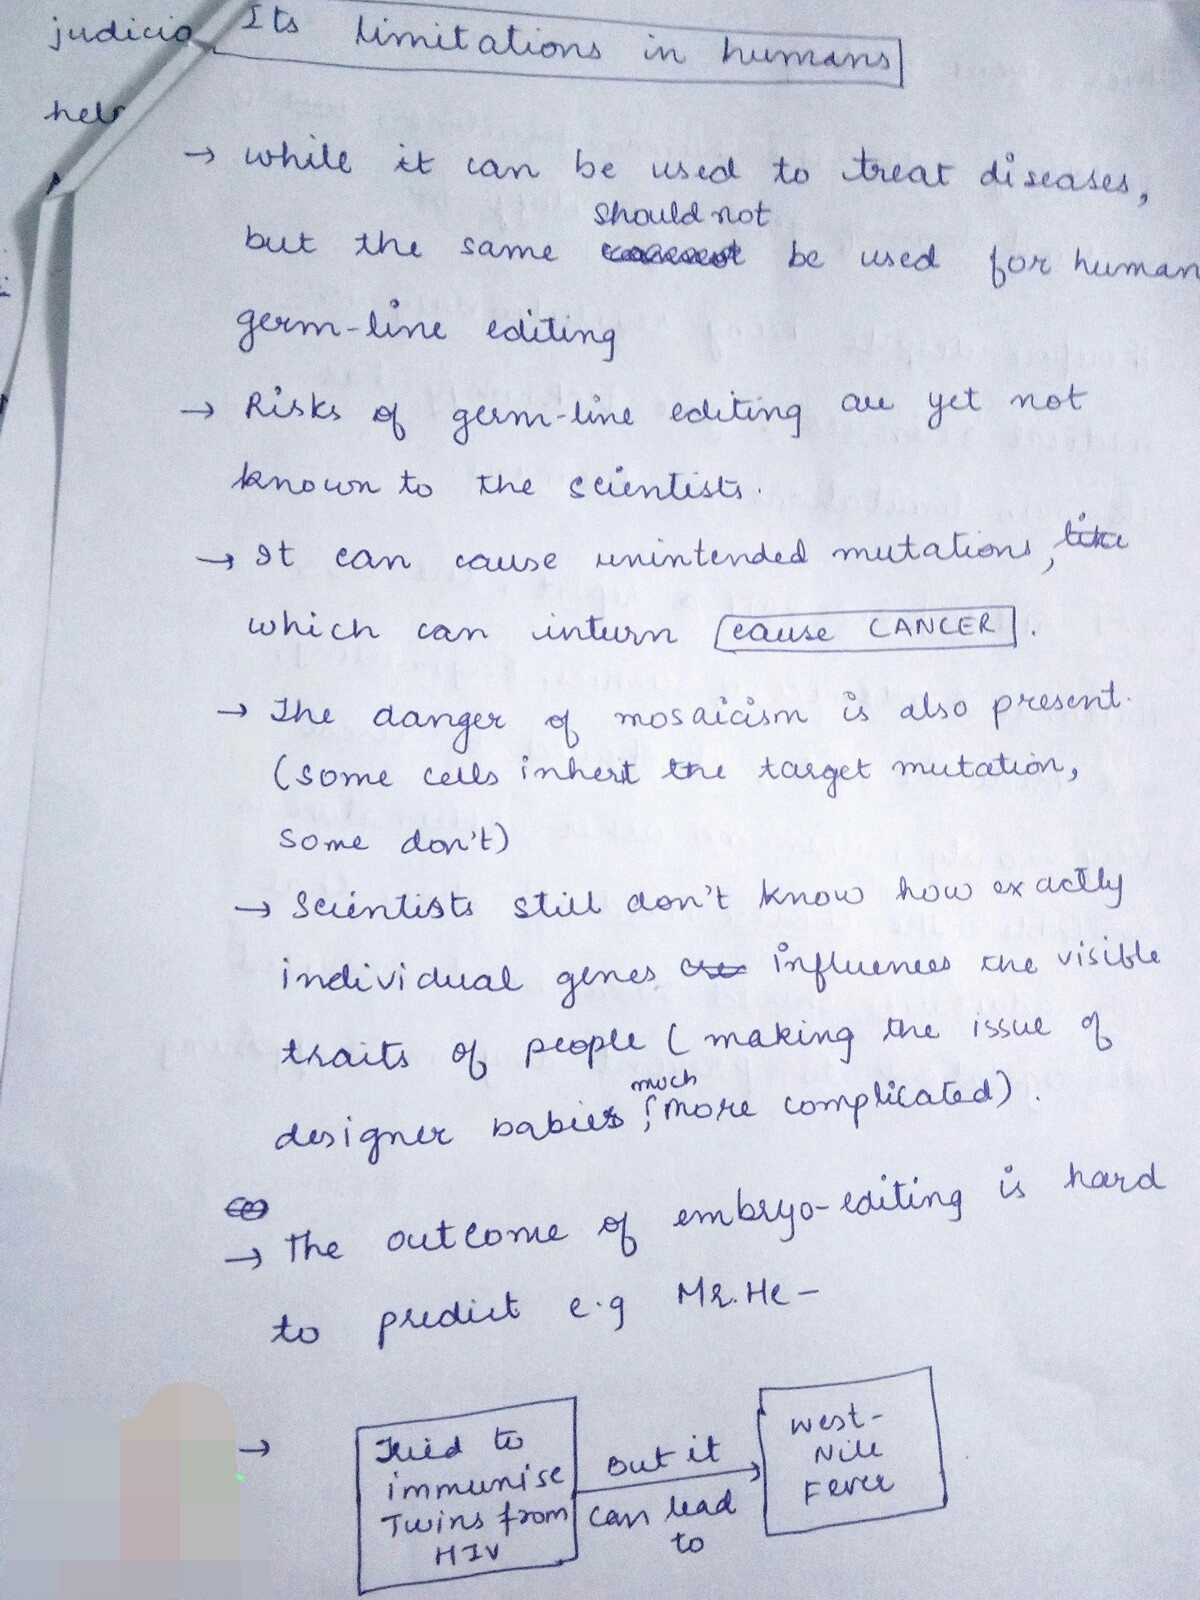 judicio
Its limitations in humans
help
→ while it can be used to treat diseases,
should not
but the same be used for human
germ-line editing
→ Risks of germ-line editing are yet not
known to the scientists.
→ It can cause unintended mutations, like
which can inturn cause CANCER.
→ The danger of mosaicism is also present.
(some cells inherit the target mutation,
some don't)
→ Scientists still don't know how exactly
individual genes influences the visible
traits of people (making the issue of
much
designer babies, more complicated).
→ The outcome of embryo-editing is hard
to predict e.g Mr. He -
→ Tried to
immunise
Twins from
HIV
But it
can lead
to
West-
Nile
Fever